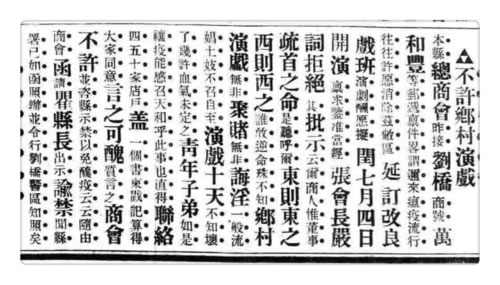 ▲不許鄉村演戲
本縣總商會昨接劉橋商號萬
和豐等郵遞稟件畧謂邇來瘟疫流行
往往許愿消除茲敝區延訂改良
戲班演劇酬愿擬閏七月四日
開演稟求鑒准當經張會長嚴
詞拒絕其批示云爾商人惟董事
疏首之命是聽呼爾東則東之
西則西之誰敢逆命殊不知鄉村
演戲無非聚賭無非誨淫一般流
娼土妓不召自至演戲十天不知壞
了幾許血氣未定之青年子弟如是
禳疫能感召天和乎此事也直得聯絡
四五十家店戶蓋一個書柬戳記算得
大家同意言之可醜質言之商會
不許並咨縣示禁以免釀疫云云隨由
商會函請瞿縣長出示諭禁聞縣
署已如函照辦並令行劉橋警區知照矣